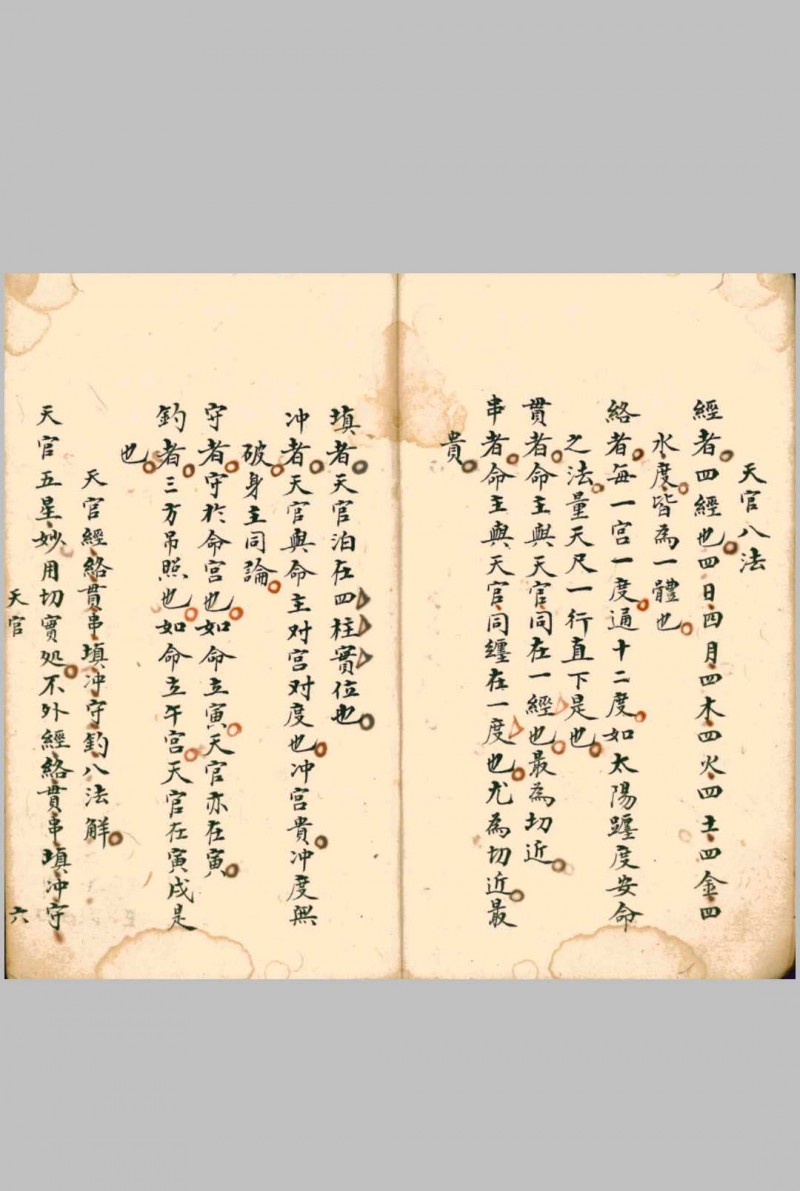 天官八法
經者四經也四日四月四木四火四土四金四
水度皆為一體也
絡者每一宮一度通十二度如太陽躔度安命
之法量天尺一行直下是也
貫者命主與天官同在一經也最為切近
串者命主與天官同纏在一度也尤為切近最
貴
填者天官泊在四柱實位也
冲者天官與命主对宮对度也冲宮貴冲度無
破身主同論
守者守於命宮也如命立寅天官亦在寅
釣者三方吊照也如命立午宮天官在寅戌是
也
天官經絡貫串填冲守釣八法觧
天官五星妙用切實処不外經絡貫串填冲守
天官
六